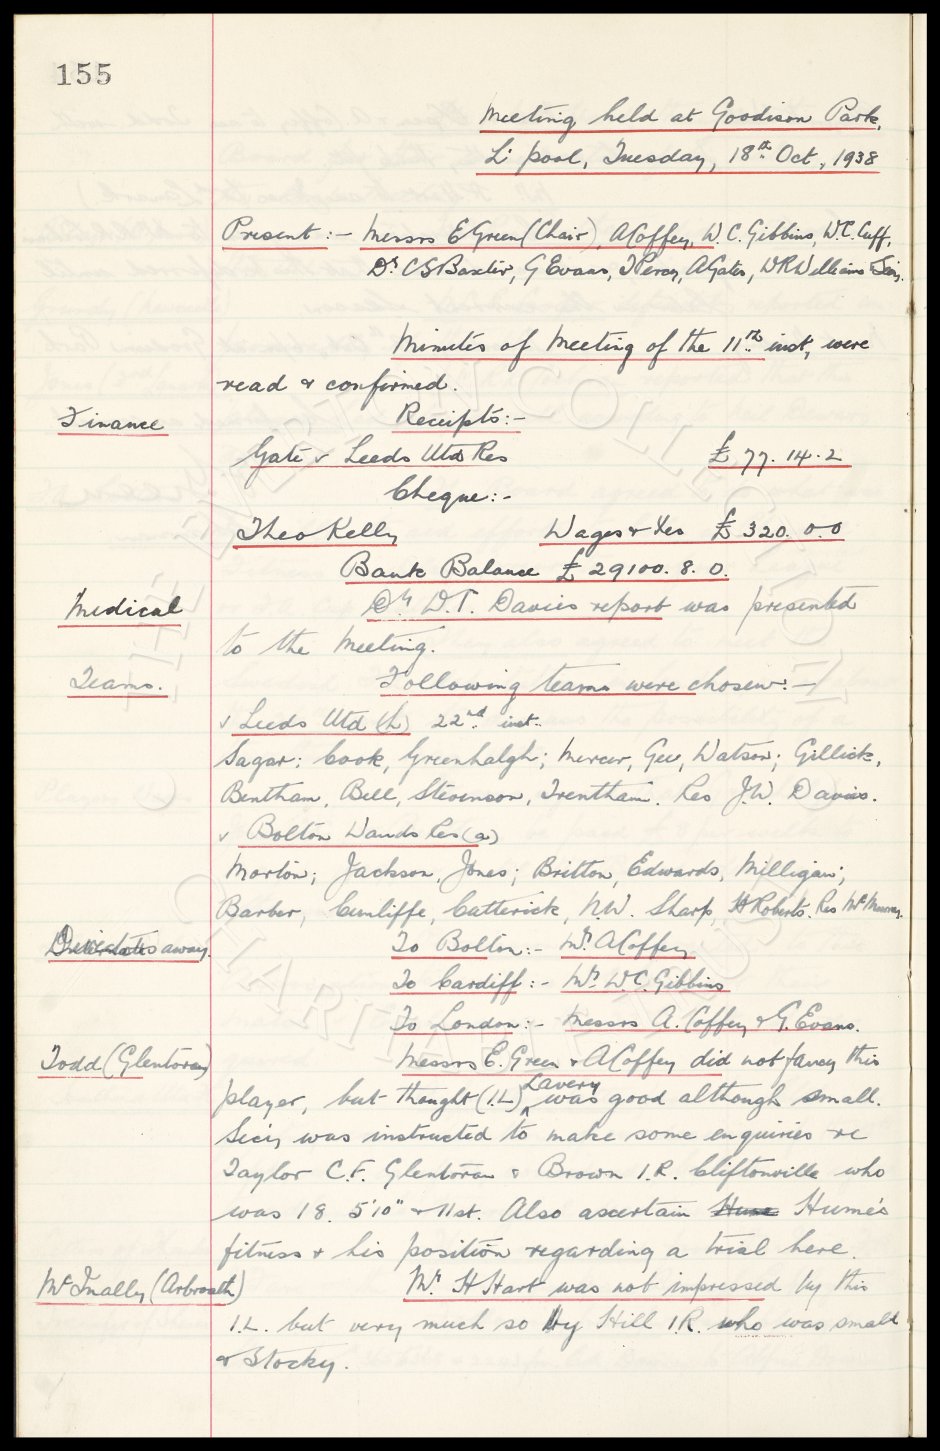 155
Meeting held at Goodison Park,
L'pool, Tuesday, 18th Oct, 1938
Present :- Messrs E Green (Chair), A Coffey, W. C. Gibbins, W.C. Cuff,
Dr C S Baxter, G Evans, T Percy, A Gates, W R Williams & Secy.
Minutes of Meeting of the 11th inst, were
read & confirmed.
Finance
Receipts:-
Gate v Leeds Utd Res £ 77. 14. 2
Cheque:-
Theo Kelly Wages & Xes £ 320. 0. 0
Bank Balance £ 29100. 8. 0.
Medical
Dr D.T. Davies report was presented
to the Meeting.
Teams.
Following teams were chosen:-
v Leeds Utd (h) 22nd inst.
Sagar; Cook, Greenhalgh; Mercer, Gee, Watson; Gillick,
Bentham, Bell, Stevenson, Trentham. Res J.W. Davies.
v Bolton Wands Res (a)
Morton; Jackson, Jones; Britton, Edwards, Milligan;
Barber, Cunliffe, Catterick, N.W. Sharp, H Roberts. Res McMurray.
Directors away.
To Bolton:- Mr A Coffey
To Cardiff:- Mr W.C. Gibbins
To London:- Messrs A. Coffey & G. Evans.
Todd (Glentoran)
Messrs E. Green & A Coffey did not fancy this
player, but thought (I.L) Lavery was good although small.
Secy was instructed to make some enquiries re
Taylor C.F. Glentoran & Brown I.R. Cliftonville who
was 18. 5'10" & 11st. Also ascertain Hume Hume's
fitness & his position regarding a trial here.
McInally (Arbroath)
Mr H Hart was not impressed by this
I.L. but very much so by Hill I.R. who was small
& Stocky.
THE EVERTON COLLECTION
CHARITABLE TRUST